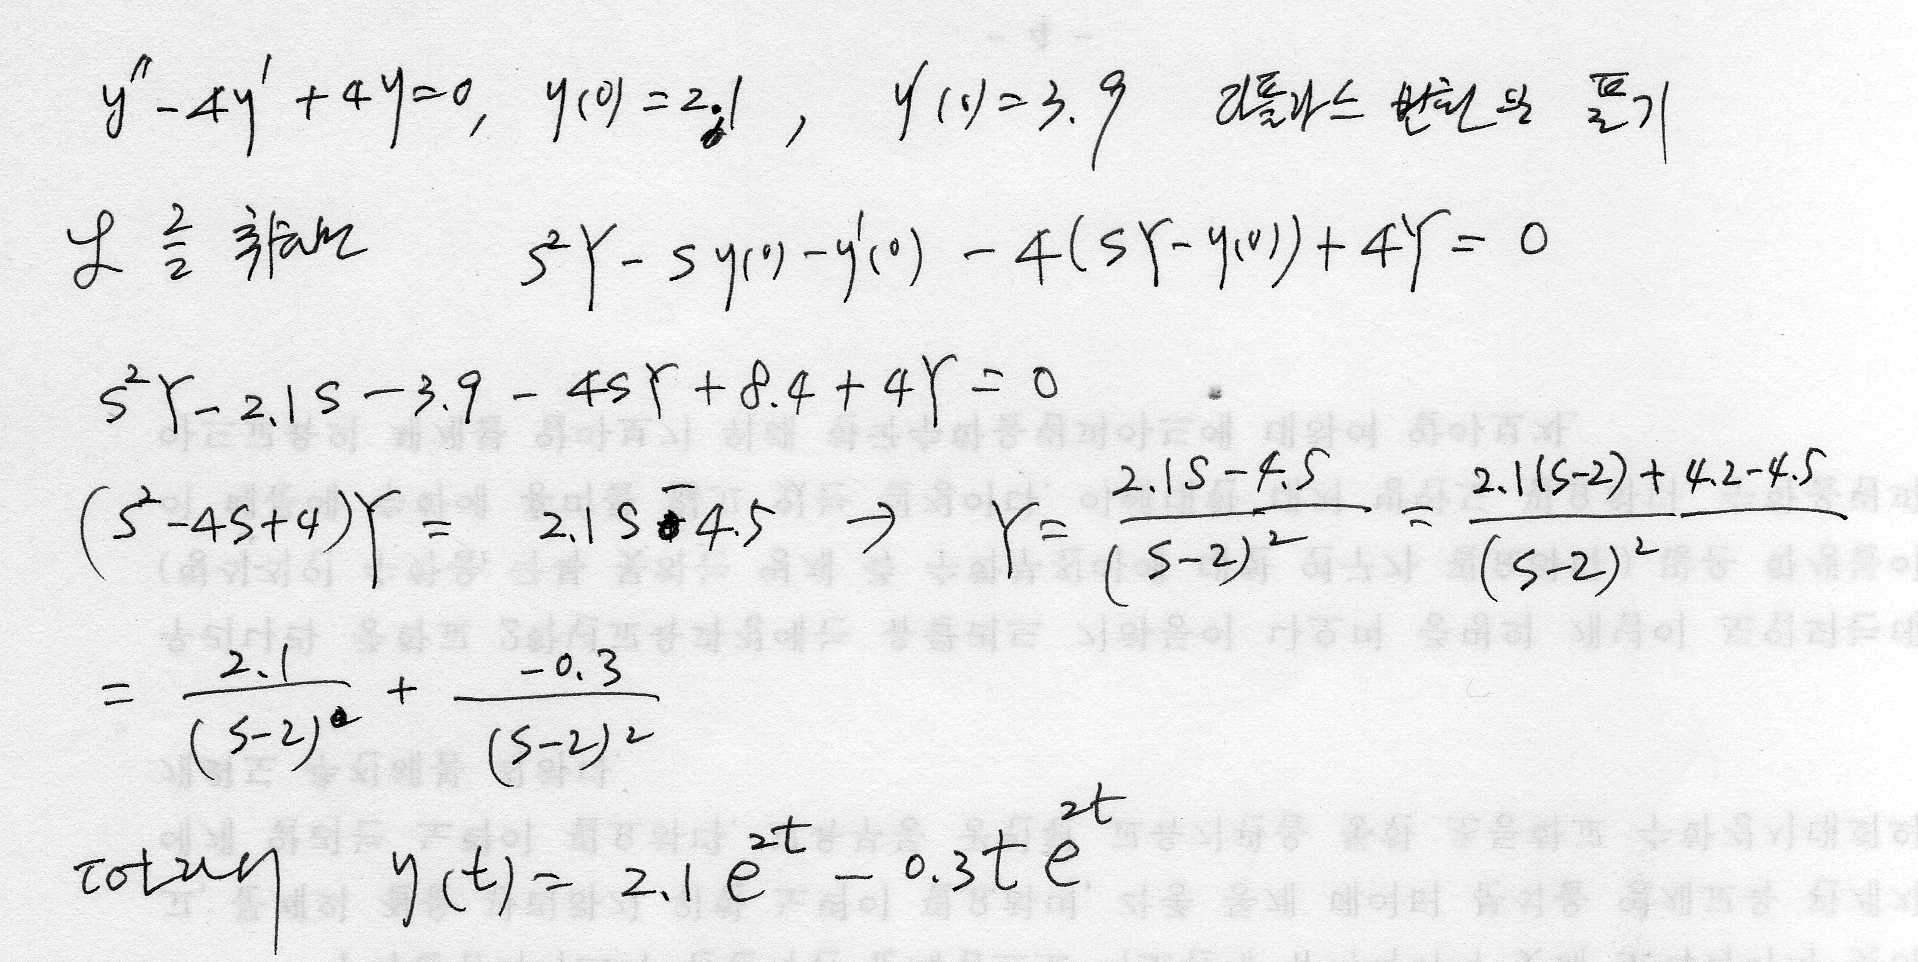 y'' - 4y' + 4y = 0, y(0) = 2.1, y'(0) = 3.9 라플라스 변환으로 풀기
ℒ 를 취하면 s²Y - sy(0) - y'(0) - 4(sY - y(0)) + 4Y = 0
s²Y - 2.1s - 3.9 - 4sY + 8.4 + 4Y = 0
(s² - 4s + 4)Y = 2.1s - 4.5 → Y = (2.1s - 4.5)/(s-2)² = (2.1(s-2) + 4.2 - 4.5)/(s-2)²
= 2.1/(s-2) + -0.3/(s-2)²
따라서 y(t) = 2.1e^{2t} - 0.3te^{2t}